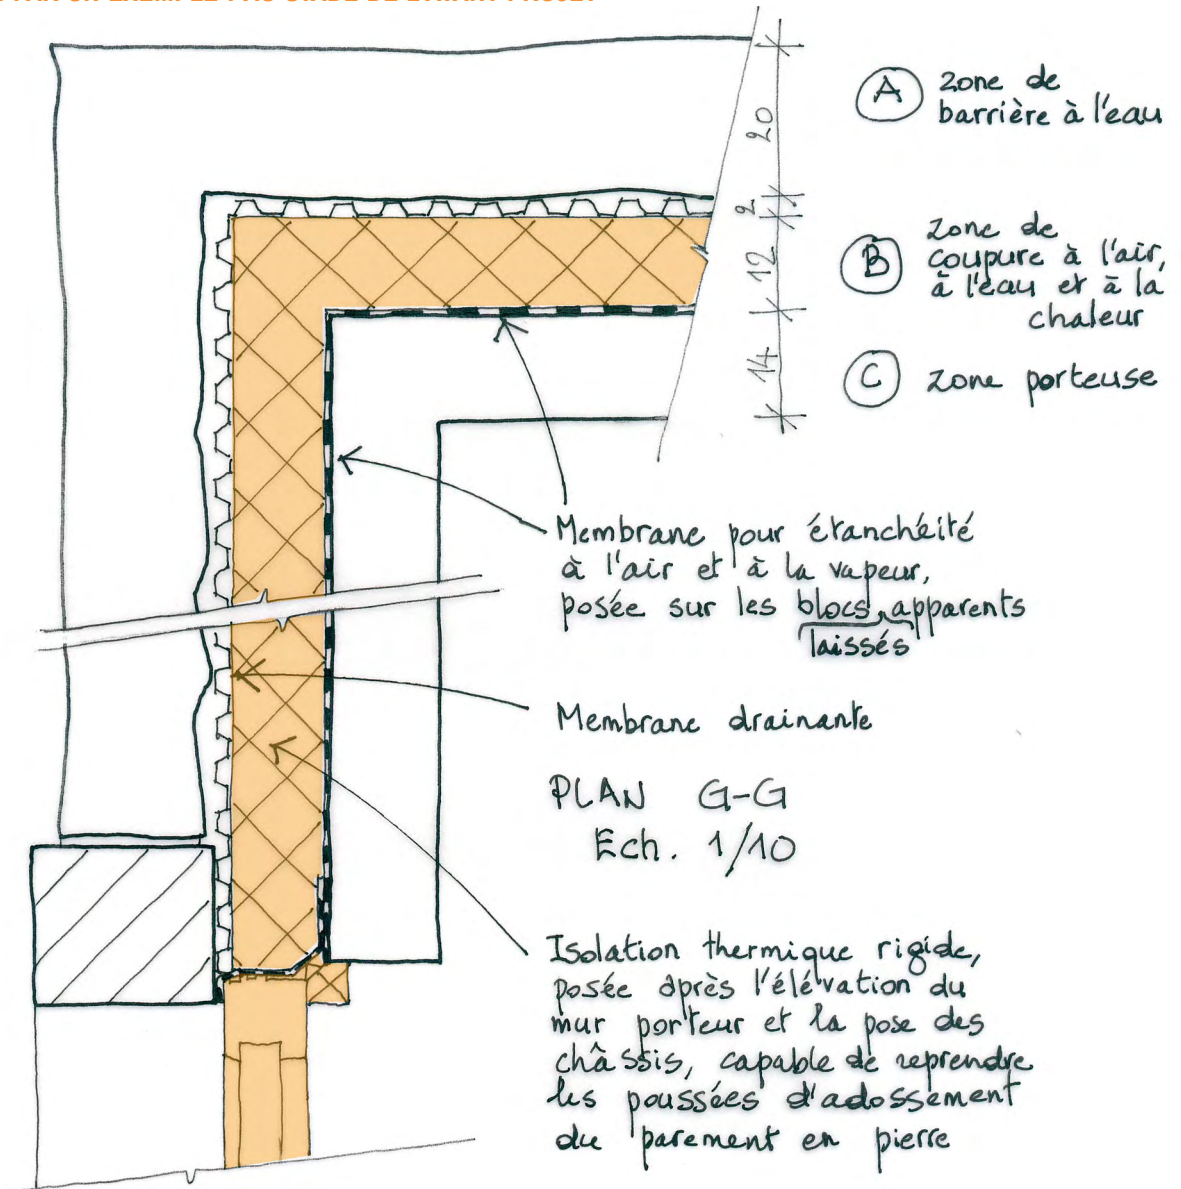 A zone de
barrière à l'eau
B zone de
coupure à l'air,
à l'eau et à la
chaleur
C zone porteuse
20
2
12
14
Membrane pour étanchéité
à l'air et à la vapeur,
posée sur les blocs apparents
laissés
Membrane drainante
PLAN G-G
Ech. 1/10
Isolation thermique rigide,
posée après l'élévation du
mur porteur et la pose des
châssis, capable de reprendre
les poussées d'adossement
du parement en pierre